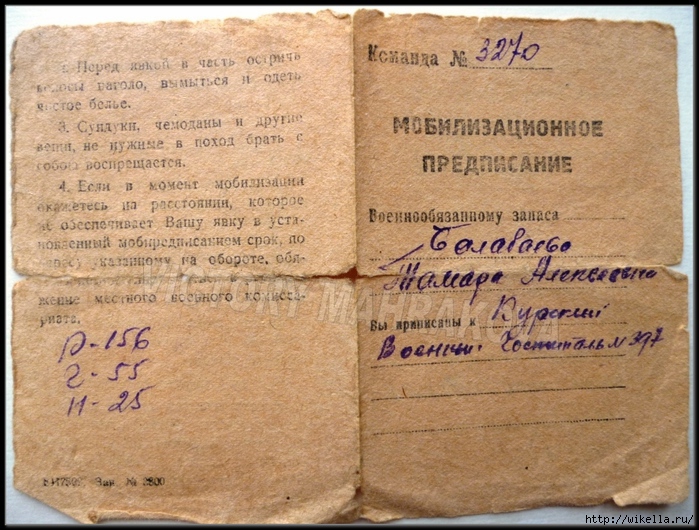 1. Перед явкой в часть остричь
волосы наголо, вымыться и одеть
чистое белье.
3. Сундуки, чемоданы и другие
вещи, не нужные в поход брать с
собою воспрещается.
4. Если в момент мобилизации
окажетесь на расстоянии, которое
не обеспечивает Вашу явку в уста-
новленный мобпредписанием срок, по
указанному на обороте, обя-
жение местного военного комисса-
риата.
Р-156
Г-55
Н-25
Зак. № 2800
Команда № 3270
МОБИЛИЗАЦИОННОЕ
ПРЕДПИСАНИЕ
Военнообязанному запаса
Тамара Алексеевна
Вы приписаны к Курский
Военный Госпиталь № 397
VICTORY MANYAKOVA
http://wikella.ru/